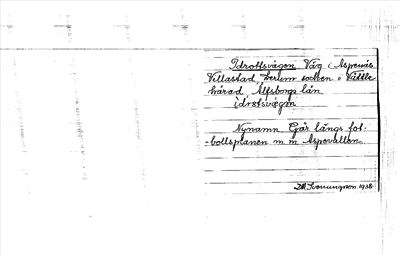 Idrottsvägen Väg i Aspenäs
Villastad, Lerum socken i Vättle
härad Älfsborgs län
idrotsvægen
Nynamn Går längs fot-
-bollsplanen m m Aspevallen